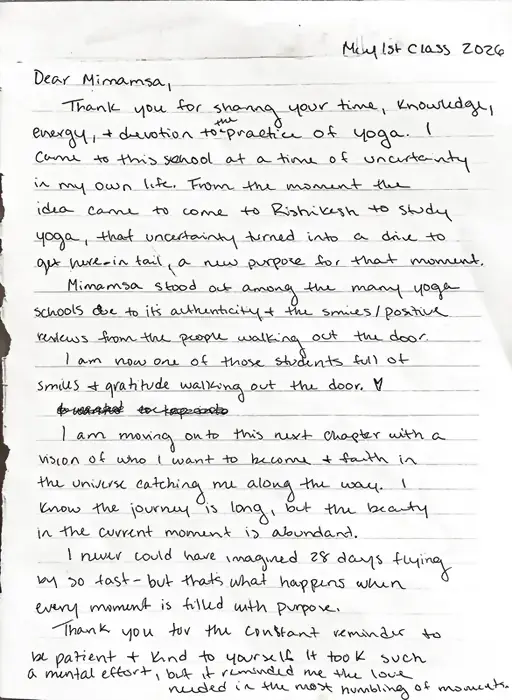 May 1st Class 2026
Dear Mimamsa,
Thank you for sharing your time, knowledge,
energy, + devotion to the practice of yoga. I
came to this school at a time of uncertainty
in my own life. From the moment the
idea came to come to Rishikesh to study
yoga, that uncertainty turned into a drive to
get here-in tail, a new purpose for that moment.
Mimamsa stood out among the many yoga
schools due to its authenticity + the smiles/positive
reviews from the people walking out the door.
I am now one of those students full of
smiles + gratitude walking out the door. ♥
I am moving onto this next chapter with a
vision of who I want to become + faith in
the universe catching me along the way. I
know the journey is long, but the beauty
in the current moment is abundant.
I never could have imagined 28 days flying
by so fast - but thats what happens when
every moment is filled with purpose.
Thank you for the constant reminder to
be patient + kind to yourself. It took such
a mental effort, but it reminded me the love
needed in the most humbling of moments.